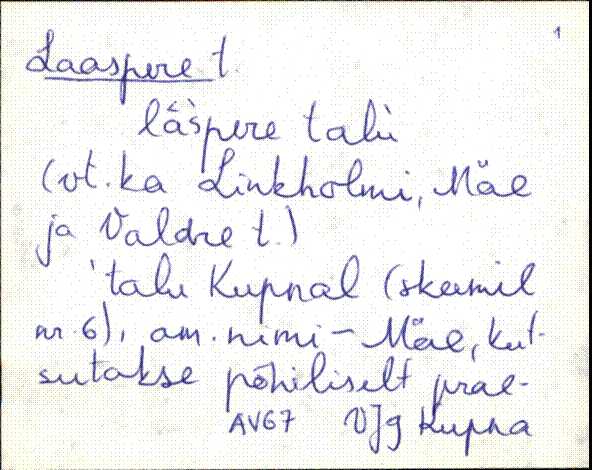 1
Laaspere t.
lā̀spere talù
(vt. ka Linkholmi, Mäe
ja Valdre t.)
'talu Kupnal (skeemil
nr. 6), am. nimi - Mäe, kut-
sutakse põhiliselt prae-
AV67 VJg Kupna